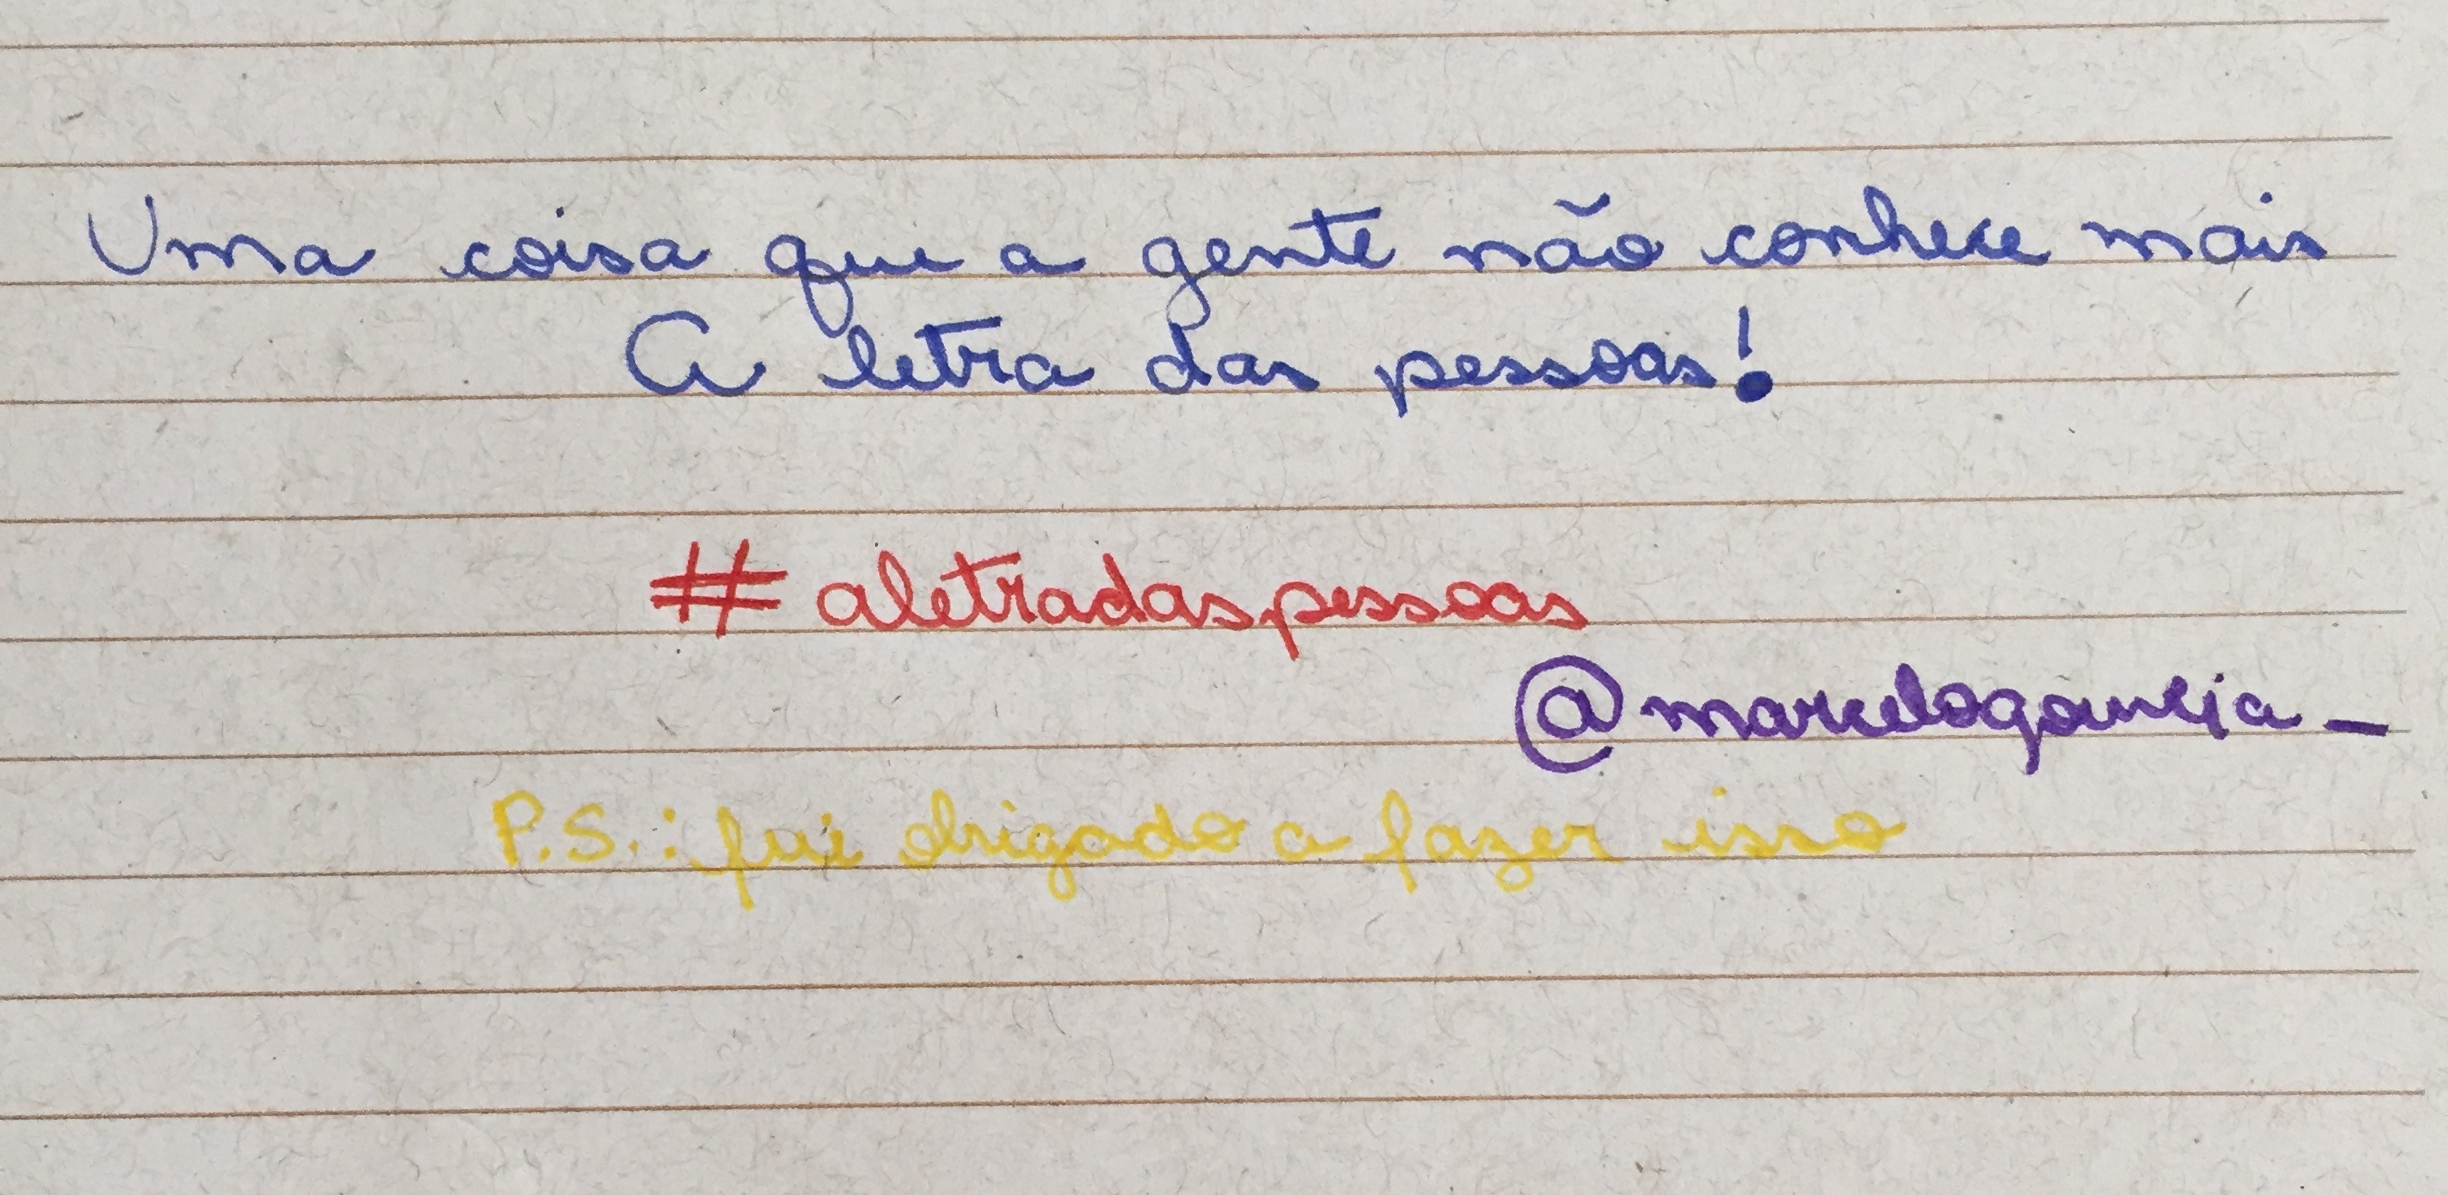 Uma coisa que a gente não conhece mais
A letra das pessoas!
#aletradaspessoas
P.S.: fui obrigado a fazer isso